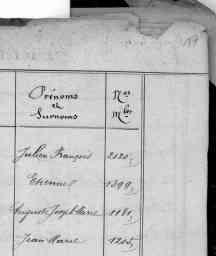 Prénoms Nos
et
Surnoms Mles
Julien François 2020
Etienne 1399
Auguste Joseph Marie 1181
Jean Marie 1205